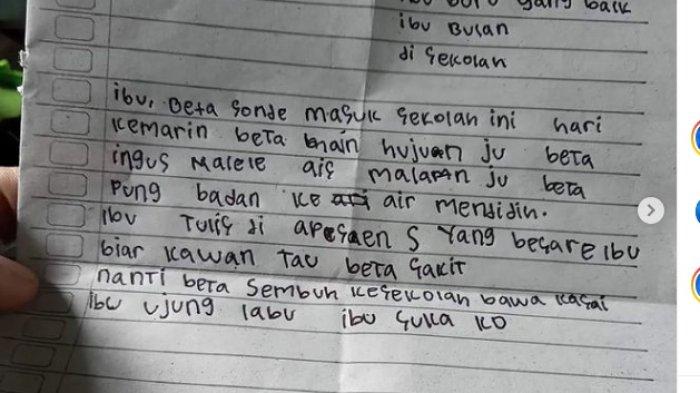 ibu Buran
di Sekolah
ibu, Beta Sonde masuk sekolah ini hari
kemarin beta main hujuan ju beta
ingus Malele air malapan ju beta
pung badan ke air mendidih.
Ibu Tulis di apesaen S yang besare ibu
biar kawan Tau beta sakit
nanti beta sembuh kesekolah bawa kasai
ibu ujung labu ibu suka ko